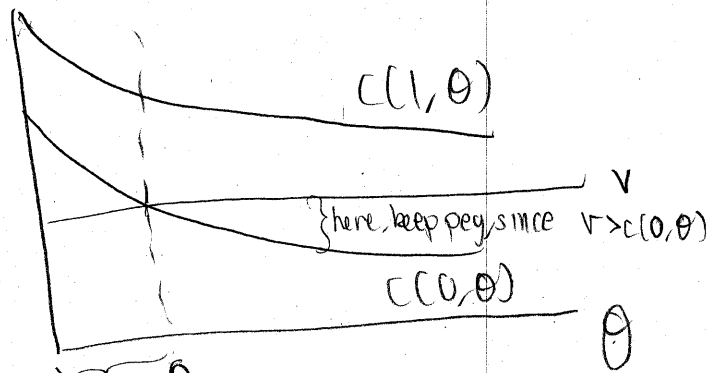 C(1,θ)
v
here, keep peg, since v>c(0,θ)
C(0,θ)
θ